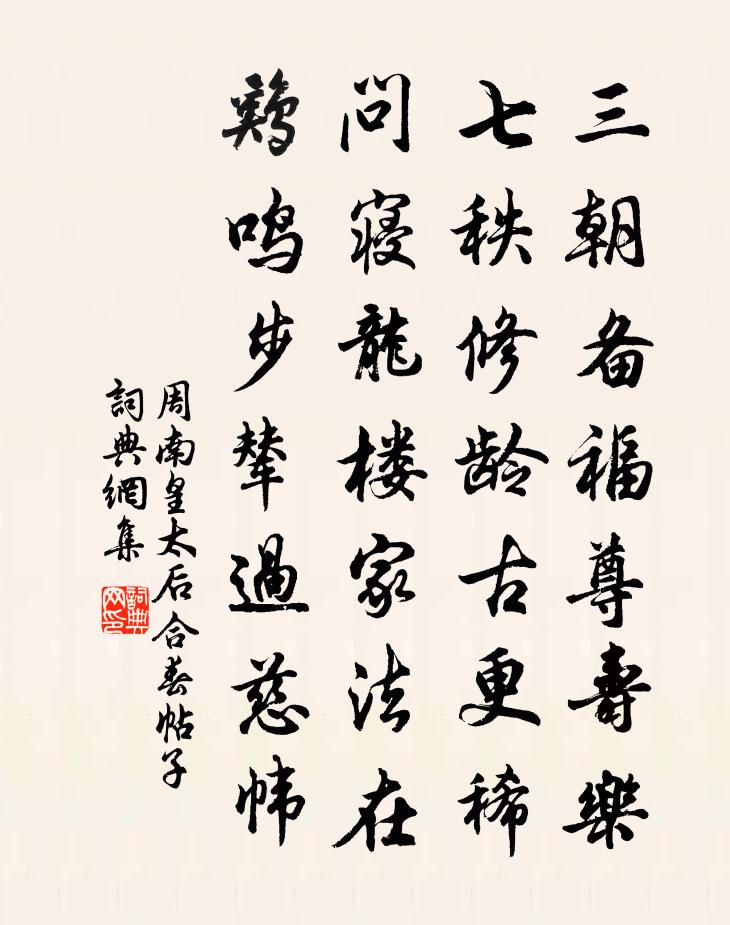 三朝备福尊壽樂
七秩修龄古更稀
問寝龍楼家法在
鷄鸣步辇過慈帏
周南皇太后合春帖子
詞典網集
詞典网印